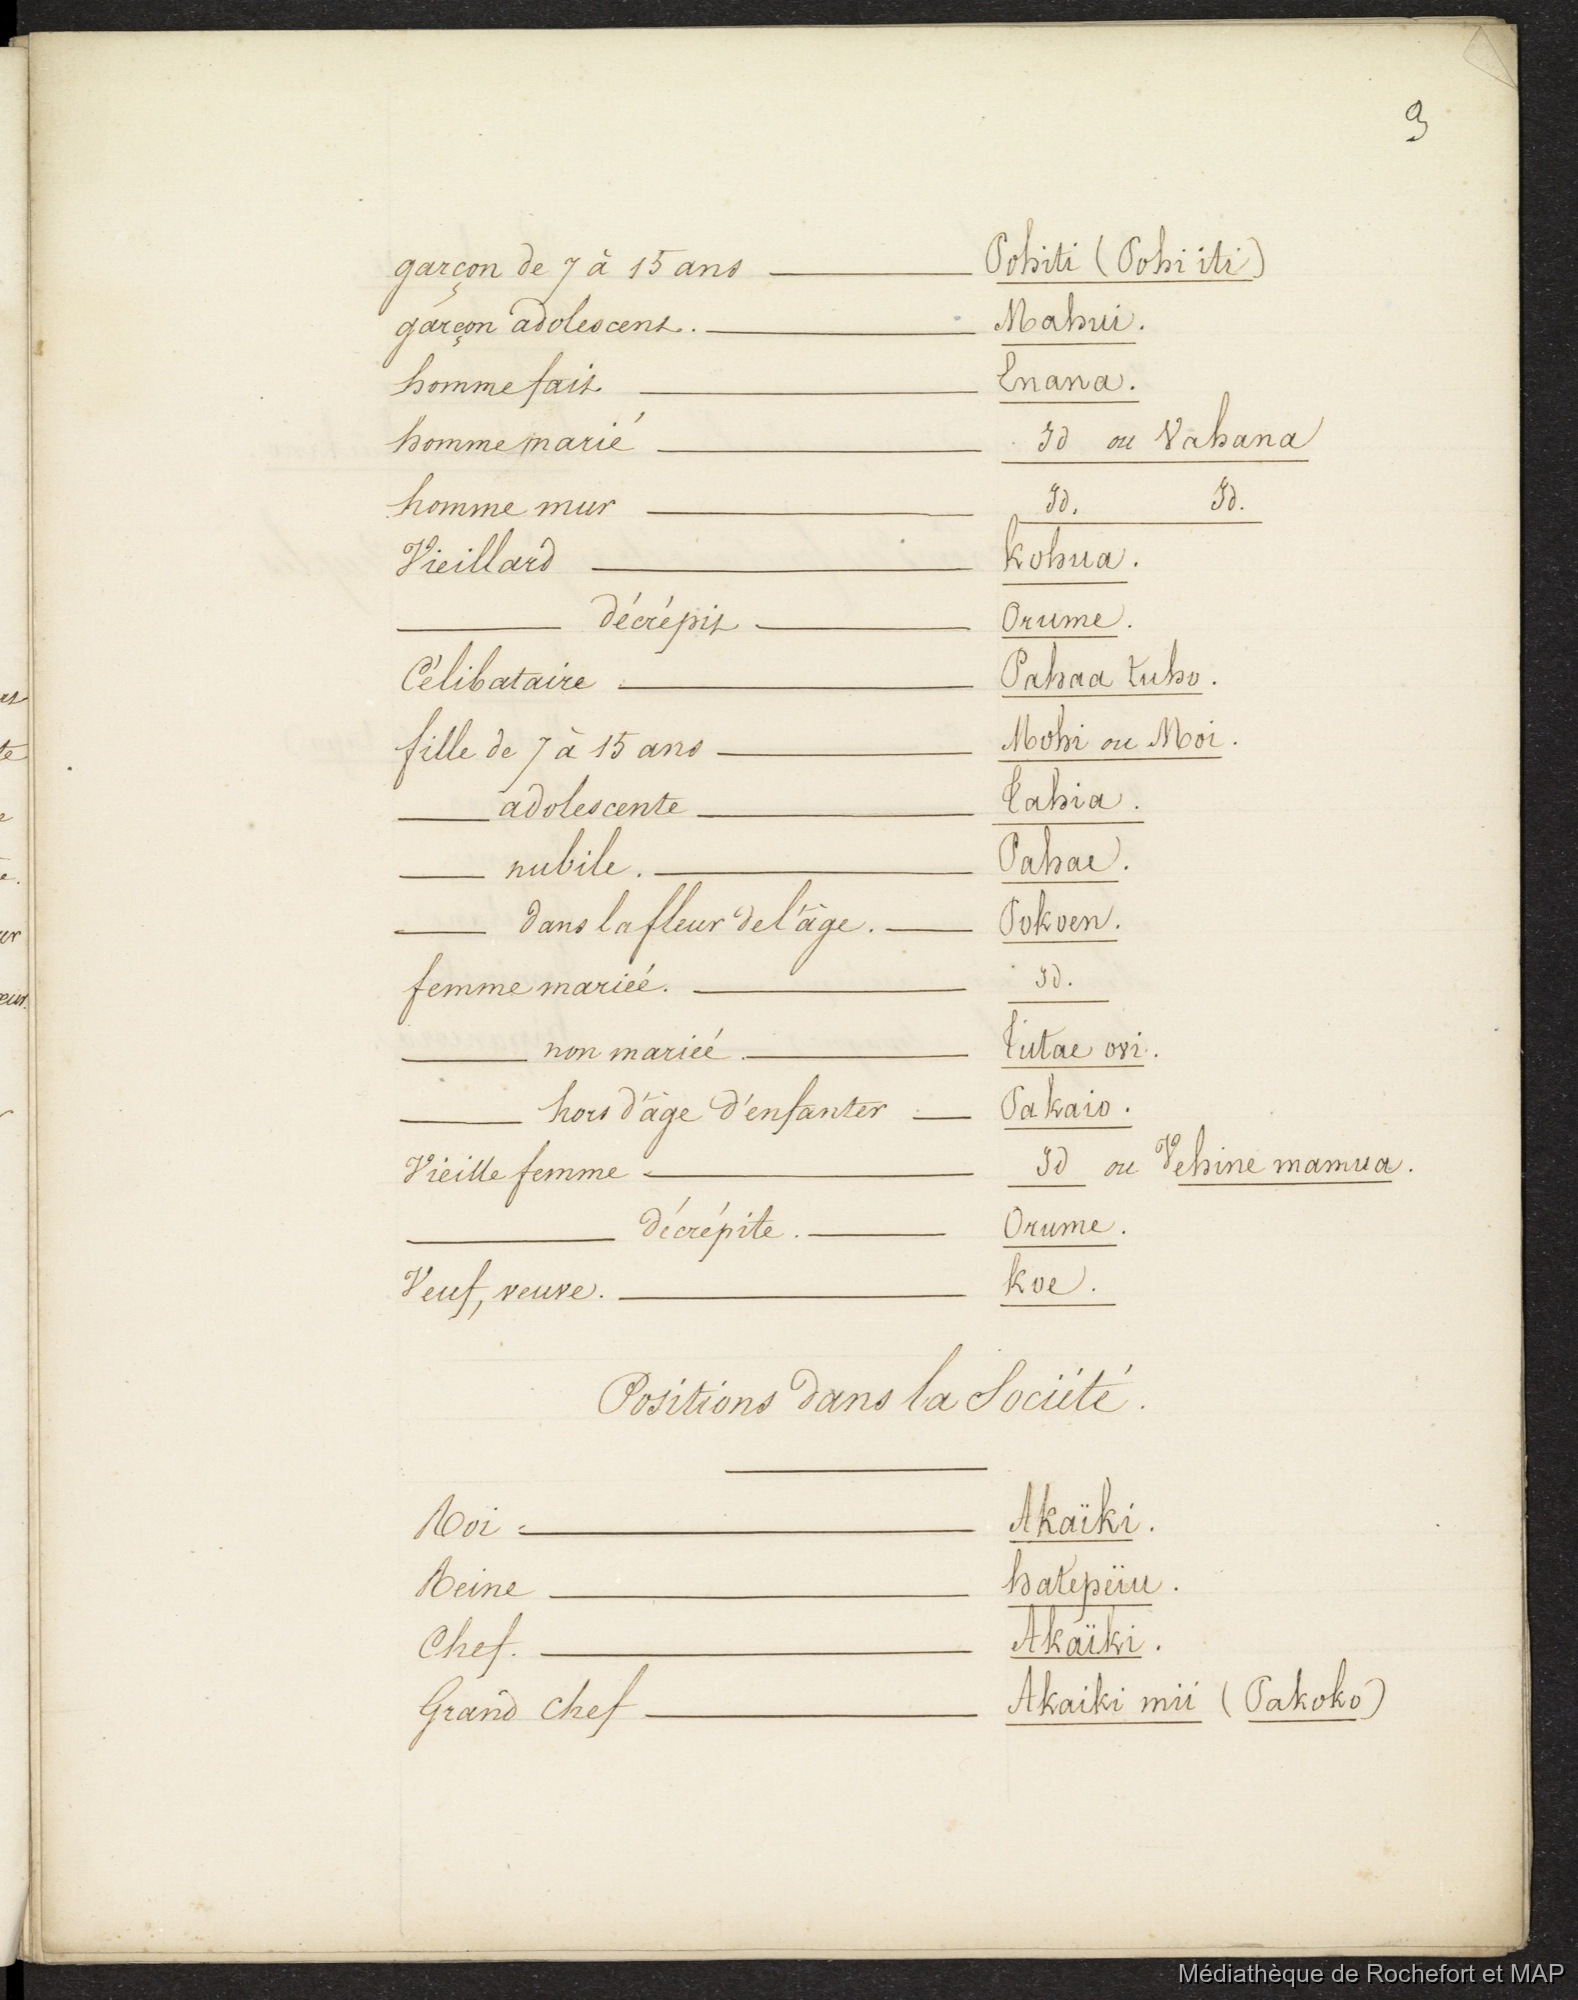 3
garçon de 7 à 15 ans ——— Pohiti (Pohi iti)
garçon adolescent. ——— Mahui.
homme fait ——— Enana.
homme marié ——— Id ou Vahana
homme mur ——— Id. Id.
Vieillard ——— Kohua.
——— décrépit ——— Orume.
Célibataire ——— Pahaa tuho.
fille de 7 à 15 ans ——— Mohi ou Moi.
——— adolescente ——— Tahia.
——— nubile. ——— Pahae.
——— dans la fleur de l'âge. ——— Pokoen.
femme mariée. ——— Id.
——— non mariée. ——— Tutae ovi.
——— hors d'âge d'enfanter ——— Pakaio.
Vieille femme ——— Id ou Vehine mamua.
——— décrépite. ——— Orume.
Veuf, veuve. ——— Koe.
Positions dans la Société.
Roi ——— Akaïki.
Reine ——— hatepëiu.
Chef. ——— Akaïki.
Grand chef ——— Akaiki mii (Pakoko)
Médiathèque de Rochefort et MAP